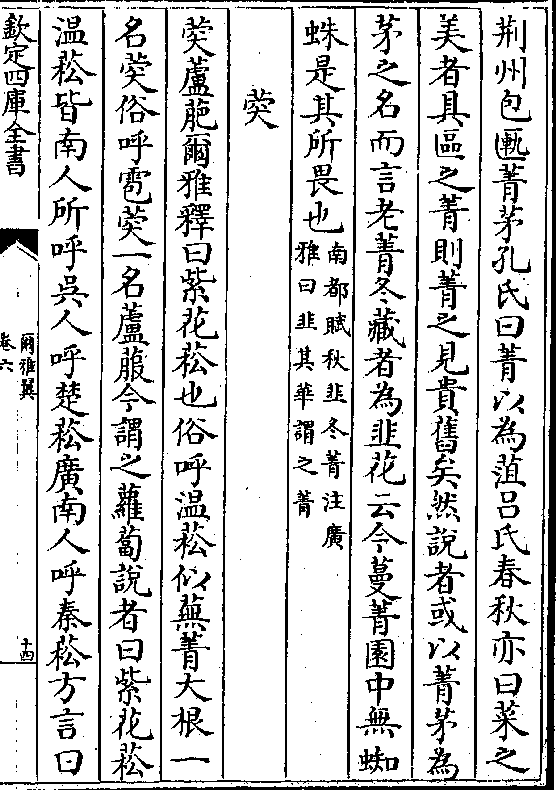 荆州包匭菁茅孔氏曰菁以為菹吕氏春秋亦曰菜之
美者具區之菁則菁之見貴舊矣然說者或以菁茅為
茅之名而言老菁冬藏者為韭花云今蔓菁園中無蜘
蛛是其所畏也南都賦秋韭冬菁注廣
雅曰韭其華謂之菁
葖
葖蘆萉爾雅釋曰紫花菘也俗呼温菘似蕪菁大根一
名葖俗呼雹葖一名蘆菔今謂之蘿蔔說者曰紫花菘
温菘皆南人所呼吳人呼楚菘廣南人呼秦菘方言曰
欽定四庫全書
爾雅翼
卷六
十四